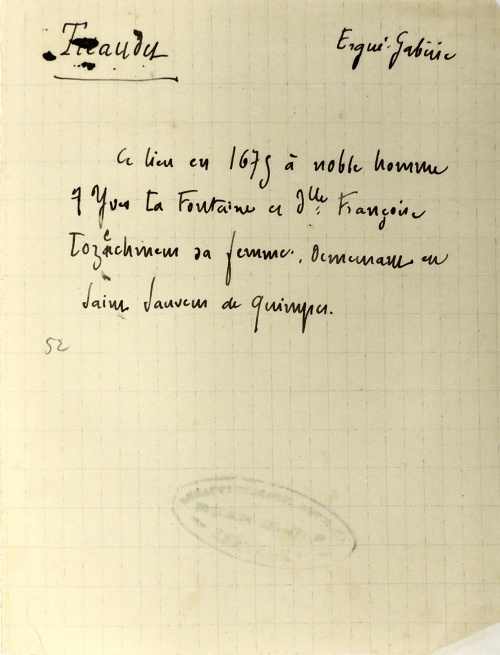 Treaudet
Ergué-Gabéric
Ce lieu en 1675 à noble homme
Yves La Fontaine et Dlle Françoise
sa femme, demeurant en
Saint Sauveur de Quimper.
52